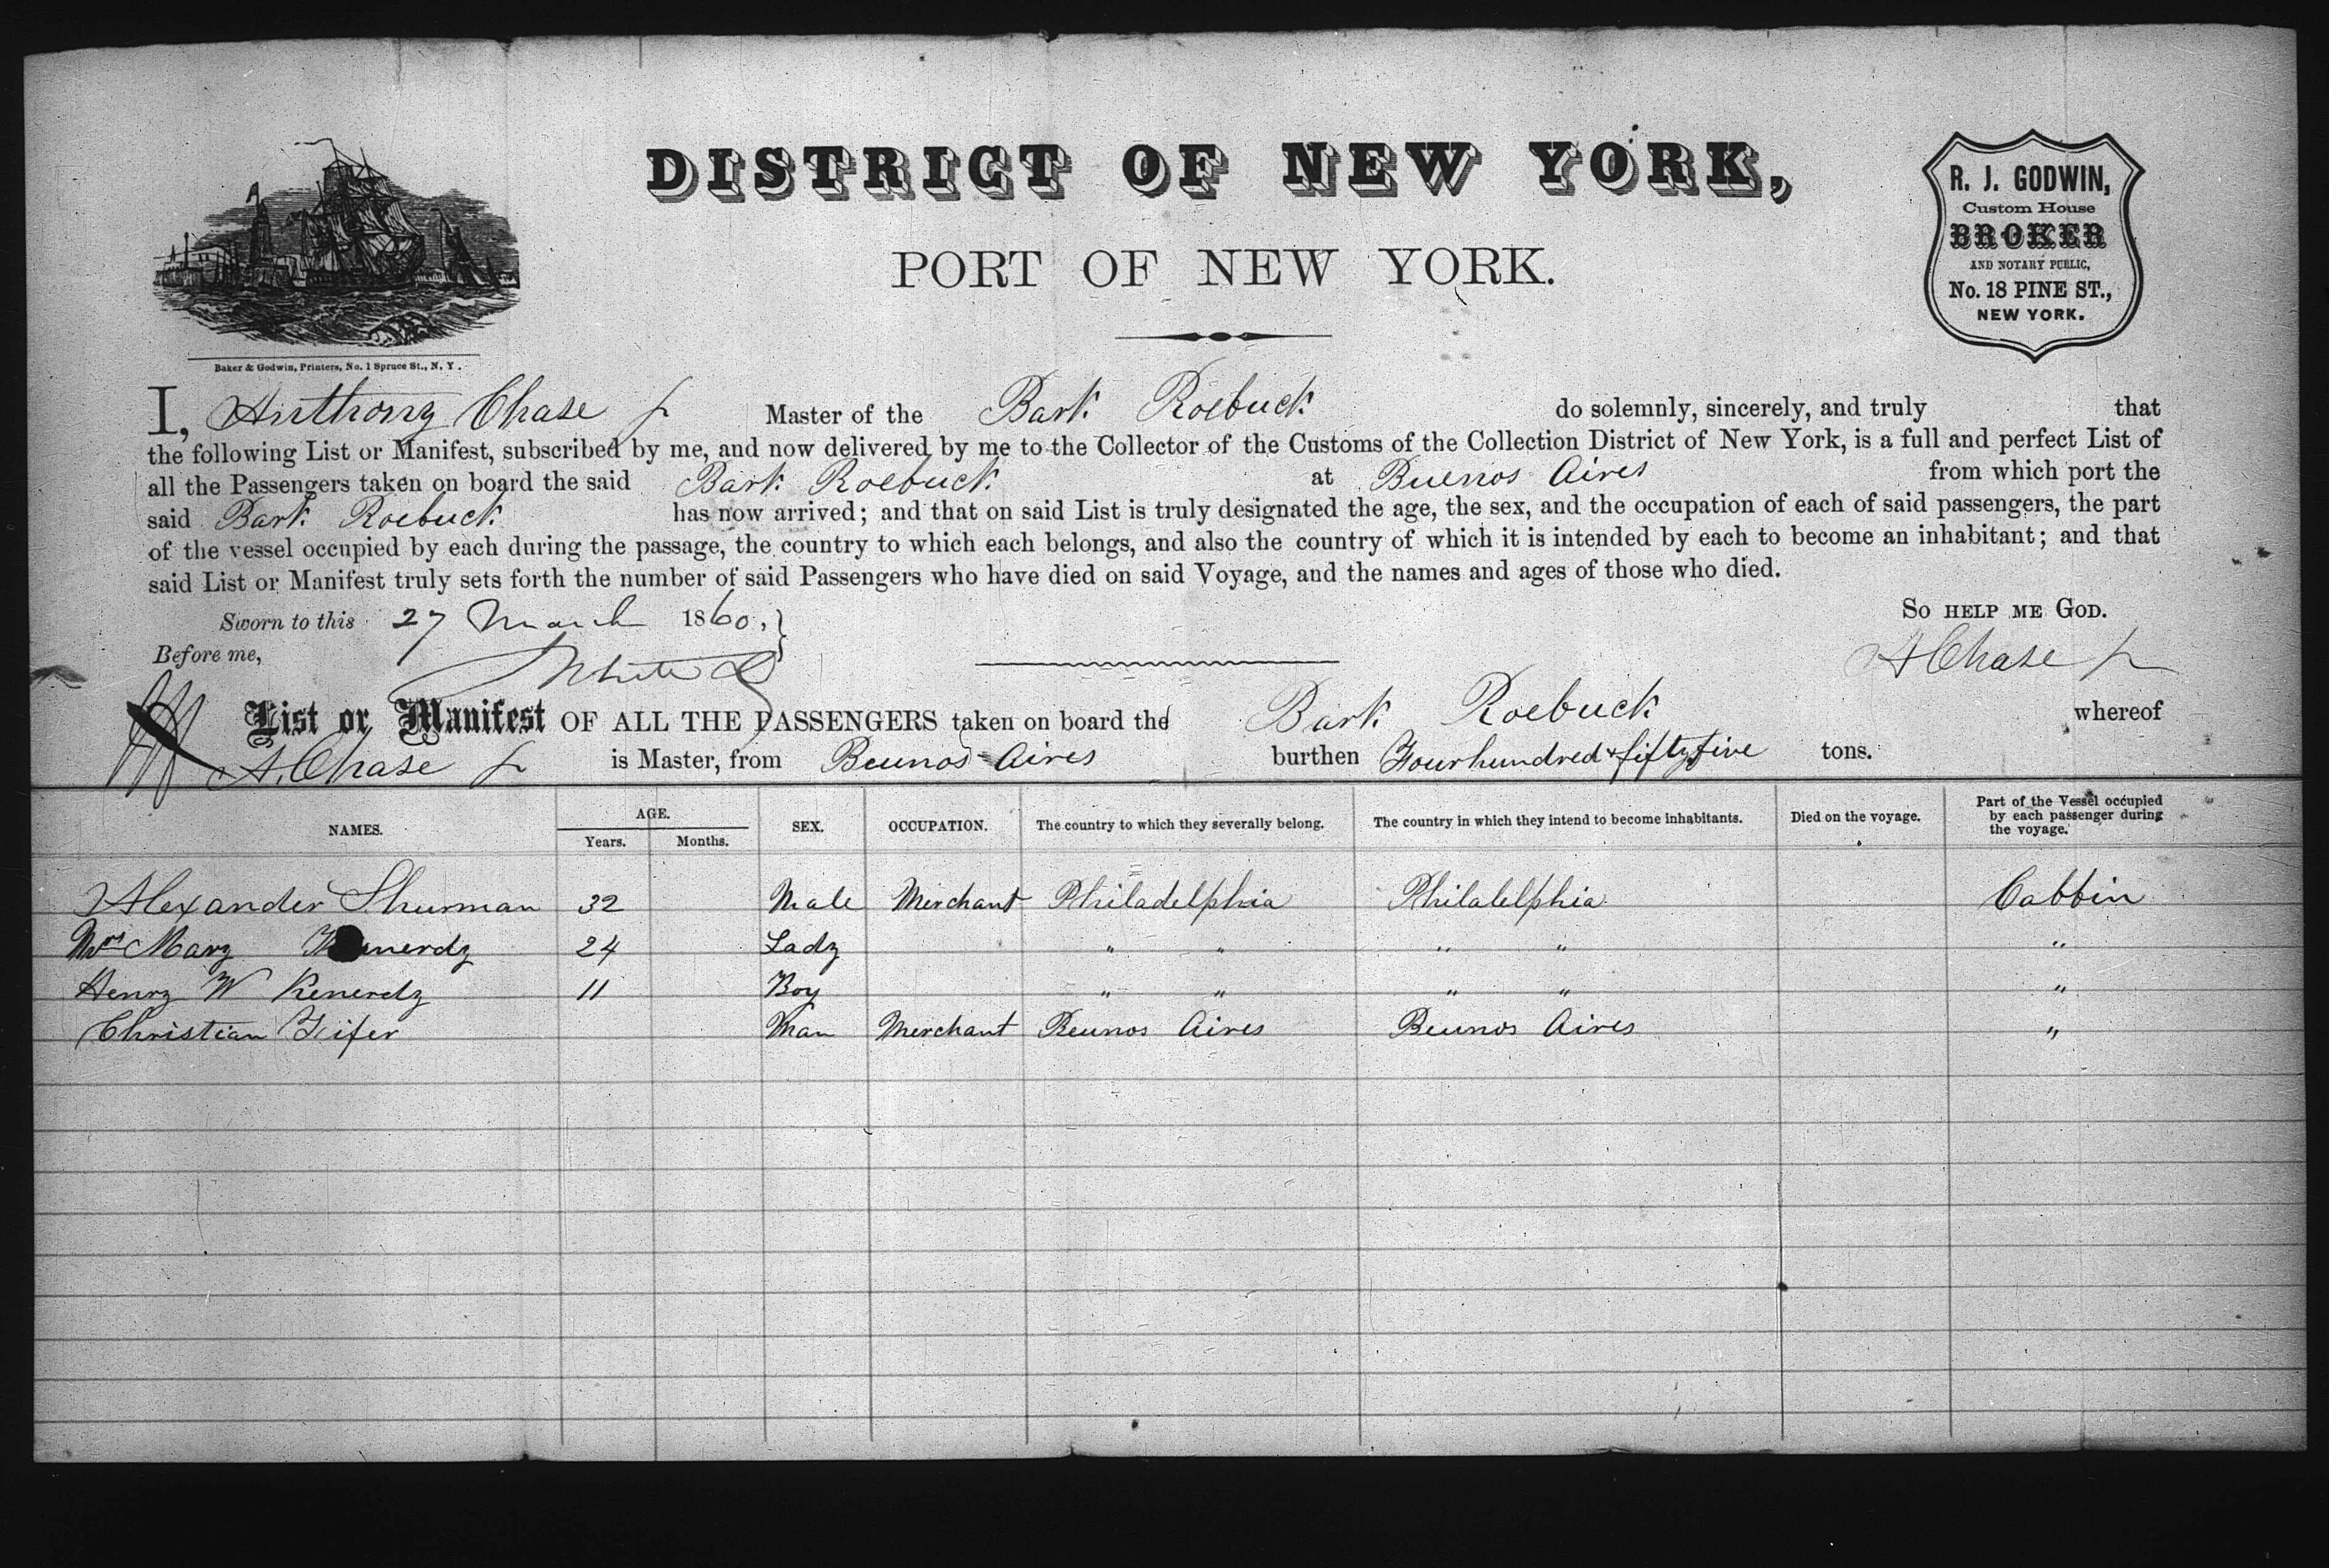 DISTRICT OF NEW YORK,
PORT OF NEW YORK.
R. J. GODWIN,
Custom House
BROKER
AND NOTARY PUBLIC,
No. 18 PINE ST.,
NEW YORK.
Baker & Godwin, Printers, No. 1 Spruce St., N. Y.
I, Anthony Chase Jr Master of the Bark Roebuck do solemnly, sincerely, and truly that
the following List or Manifest, subscribed by me, and now delivered by me to the Collector of the Customs of the Collection District of New York, is a full and perfect List of
all the Passengers taken on board the said Bark Roebuck at Buenos Aires from which port the
said Bark Roebuck has now arrived; and that on said List is truly designated the age, the sex, and the occupation of each of said passengers, the part
of the vessel occupied by each during the passage, the country to which each belongs, and also the country of which it is intended by each to become an inhabitant; and that
said List or Manifest truly sets forth the number of said Passengers who have died on said Voyage, and the names and ages of those who died.
Sworn to this 27 March 1860, SO HELP ME GOD.
Before me, A Chase Jr
List or Manifest OF ALL THE PASSENGERS taken on board the Bark Roebuck whereof
A. Chase Jr is Master, from Beunos Aires burthen Fourhundred & fiftyfive tons.
NAMES. AGE. Years. Months. SEX. OCCUPATION. The country to which they severally belong. The country in which they intend to become inhabitants. Died on the voyage. Part of the Vessel occupied by each passenger during the voyage.
Alexander Shurman 32 Male Merchant Philadelphia Philalelphia Cabbin
Mrs Mary 24 Lady " " " " "
Henry W Kenerdy 11 Boy " " " " "
Christian Fifer Man Merchant Beunos Aires Beunos Aires "